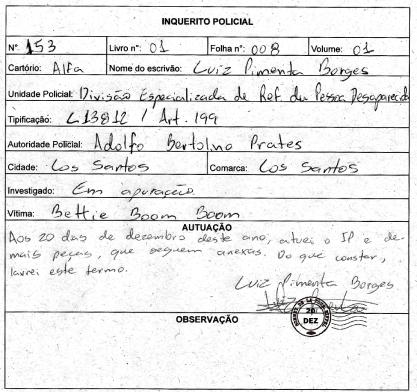 INQUERITO POLICIAL
Nº 153 Livro nº: 01 Folha nº: 008 Volume: 01
Cartório: Alfa Nome do escrivão: Luiz Pimenta Borges
Unidade Policial: Divisão Especializada de Ref. da Pessoa Desaparecida
Tipificação: L13812 / Art. 199
Autoridade Policial: Adolfo Bertolino Prates
Cidade: Los Santos Comarca: Los Santos
Investigado: Em apuração
Vítima: Bettie Boom Boom
AUTUAÇÃO
Aos 20 dias de dezembro deste ano, atuei o IP e de-
mais peças, que seguem anexas. Do que constar,
lavrei este termo.
Luiz Pimenta Borges
20
DEZ
OBSERVAÇÃO